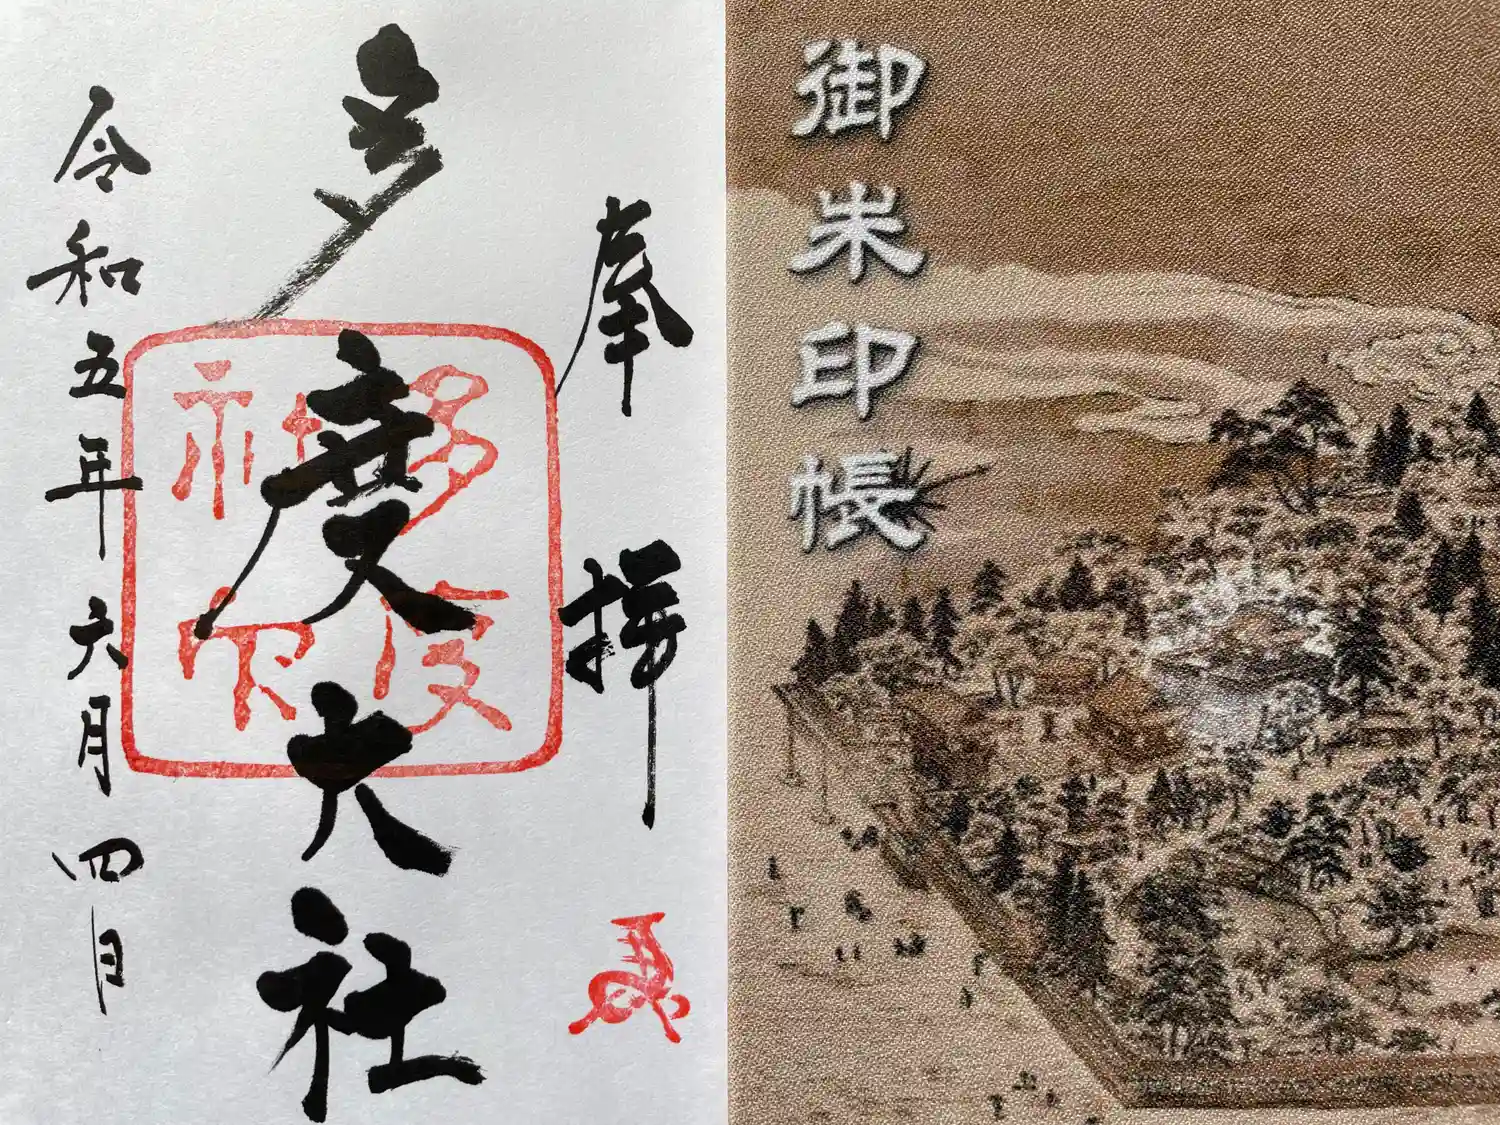 御朱印帳
奉拝
多度大社
令和五年六月四日